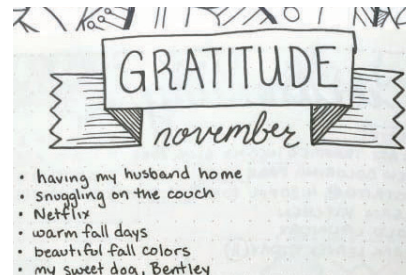 GRATITUDE
november
• having my husband home
• snuggling on the couch
• Netflix
• warm fall days
• beautiful fall colors
• my sweet dog, Bentley